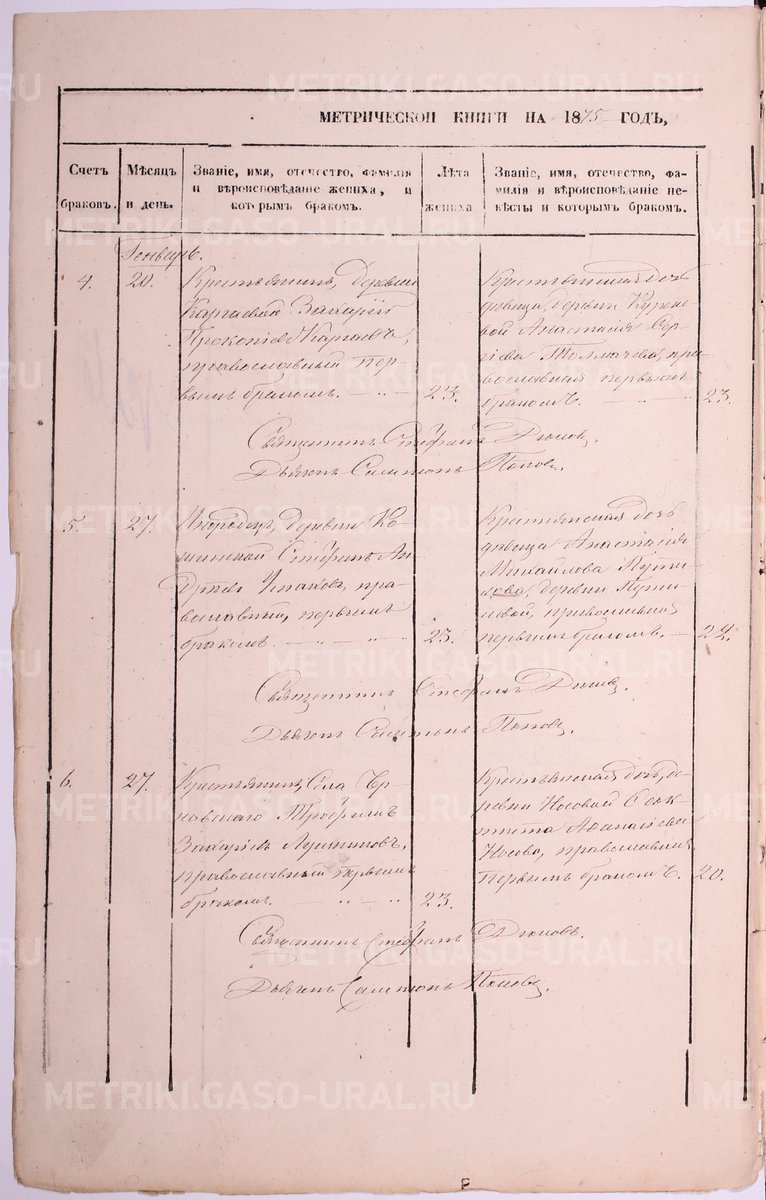 МЕТРИЧЕСКОЙ КНИГИ НА 1875 ГОДЪ,
Счетъ браковъ.
Мѣсяцъ и день.
Званіе, имя, отечество, фамилія
и вѣроисповѣданіе жениха, и
которымъ бракомъ.
Лѣта жениха
Званіе, имя, отечество, фа-
милія и вѣроисповѣданіе не-
вѣсты и которымъ бракомъ.
Генварь.
4.
20.
Крестьянинъ, деревни
Каргаевой Захарій
Прокопіевъ Каргаевъ,
православный пер-
вымъ бракомъ.
23.
Крестьянская дочь
дѣвица, деревни
вой Анастасія Сер-
гіева Толмачева, пра-
вославная первымъ
бракомъ.
23.
Священникъ Стефанъ Дюковъ.
Дьяконъ Сампсонъ Поповъ.
5.
27.
Инородецъ, деревни Ко-
минской Стефанъ Ан-
, пра-
вославный, первымъ
бракомъ.
23.
Крестьянская дочь
дѣвица Анастасія
Михайлова Пути-
лова, деревни Пути-
ловой, православная
первымъ бракомъ.
22.
Священникъ Стефанъ Дюковъ.
Дьяконъ Сампсонъ Поповъ.
6.
27.
Крестьянинъ, Села Чер-
новскаго Трофимъ
Захаріевъ
православный первымъ
бракомъ.
23.
Крестьянская дочь, де-
ревни Носовой Секле-
тиніа Афанасіева
Носова, православная
первымъ бракомъ.
20.
Священникъ Стефанъ Дюковъ.
Дьяконъ Сампсонъ Поповъ.
METRIKI.GASO-URAL.RU